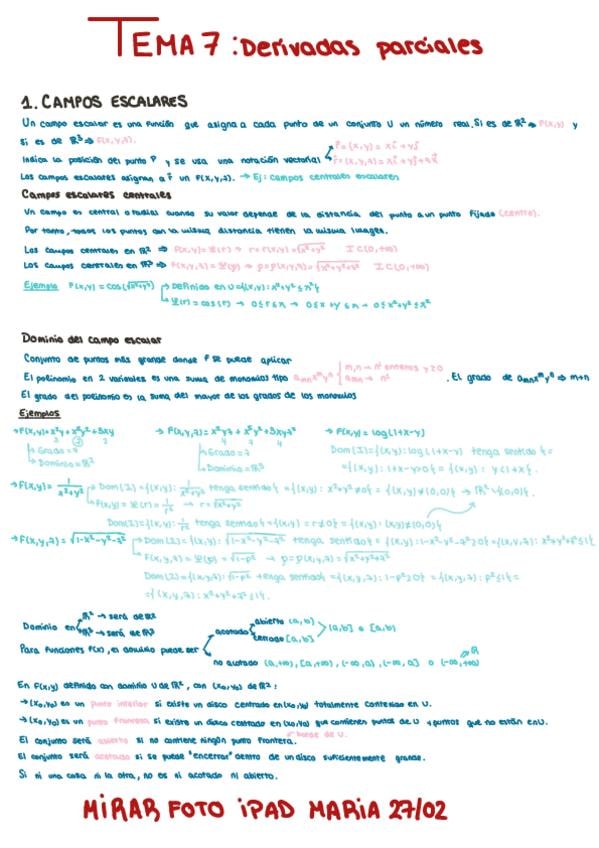 TEMA 7: Derivadas parciales
1. CAMPOS ESCALARES
Un campo escalar es una función que asigna a cada punto de un conjunto U un número real. Si es de ℝ² ⇒ F(x,y) y
si es de ℝ³ ⇒ F(x,y,z).
Indica la posición del punto P y se usa una notación vectorial r⃗=(x,y)=xi⃗+yj⃗
Los campos escalares asignan a r⃗ un F(x,y,z). → Ej: campos centrales escalares
Campos escalares centrales
Un campo es central o radial cuando su valor depende de la distancia del punto a un punto fijado (centro).
Por tanto, todos los puntos con la misma distancia tienen la misma imagen.
Los campos centrales en ℝ² ⇒ F(x,y)=φ(r) → r=r(x,y)=√x²+y² I⊂[0,+∞)
Los campos centrales en ℝ³ ⇒ F(x,y,z)=φ(p) → p=p(x,y,z)=√x²+y²+z² I⊂[0,+∞)
Ejemplo F(x,y)=cos(√x²+y²) Definido en U={(x,y): x²+y²≤π²}
φ(r)=cos(r) → 0≤r≤π →
Dominio del campo escalar
Conjunto de puntos más grande donde F se puede aplicar
El polinomio en 2 variables es una suma de monomios tipo aₘₙxᵐyⁿ m,n → nº enteros y ≥0 . El grado de aₘₙxᵐyⁿ ⇒ m+n
aₘₙ → nº
El grado del polinomio es la suma del mayor de los grados de los monomios
Ejemplos
→ F(x,y)= → F(x,y,z)= → F(x,y)=log(1+x-y)
Grado=7 Grado=7 Dom(f)={(x,y): log(1+x-y) tenga sentido}=
Dominio=ℝ² Dominio=ℝ³ ={(x,y): 1+x-y>0}={(x,y): y<1+x}.
→ F(x,y)=1/x²+y² Dom(f)={(x,y): 1/x²+y² tenga sentido}={(x,y): x²+y²≠0}={(x,y)≠(0,0)} → ℝ²\{(0,0)}.
F(x,y)=φ(r)= → r=√x²+y²
Dom(f)={(x,y): tenga sentido}={(x,y)=r≠0}={(x,y): (x,y)≠(0,0)}
→ F(x,y,z)=√1-x²-y²-z² Dom(f)={(x,y,z): √1-x²-y²-z² tenga sentido}={(x,y,z):1-x²-y²-z²≥0}={(x,y,z): x²+y²+z²≤1}.
F(x,y,z)=φ(p)=√1-p² → p=p(x,y,z)=√x²+y²+z²
Dom(f)={(x,y,z): √1-p² tenga sentido}={(x,y,z): 1-p²≥0}={(x,y,z): p²≤1}=
={(x,y,z): x²+y²+z²≤1}.
Dominio en ℝ² → será de ℝ²
ℝ³ → será de ℝ³
Para funciones F(x), el dominio puede ser acotado abierto (a,b) (a,b] o [a,b)
cerrado [a,b]
no acotado (a,+∞), [a,+∞), (-∞,a), (-∞,a] o (-∞,+∞) ℝ
En F(x,y) definido con dominio U de ℝ², con (x₀,y₀) de ℝ²:
→ (x₀,y₀) es un punto interior si existe un disco centrado en (x₀,y₀) totalmente contenido en U.
→ (x₀,y₀) es un punto frontera si existe un disco centrado en (x₀,y₀) que contienen puntos de U y puntos que no están en U.
borde de U.
El conjunto será abierto si no contiene ningún punto frontera.
El conjunto será acotado si se puede "encerrar" dentro de un disco suficientemente grande.
Si ni una cosa ni la otra, no es ni acotado ni abierto.
MIRAR FOTO iPAD MARIA 27/02